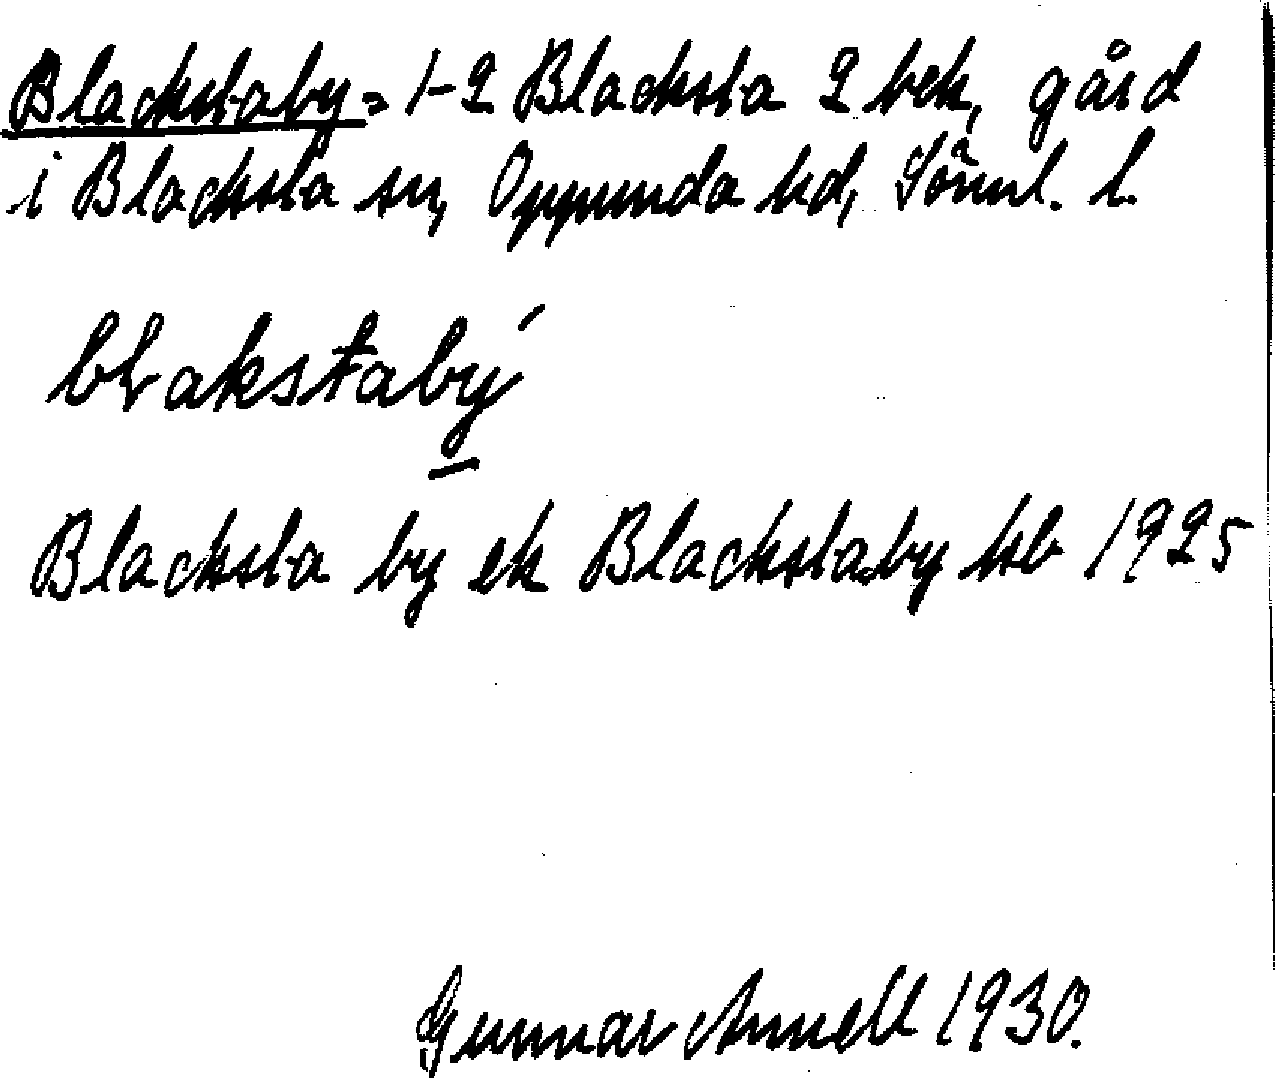 Blackstaby = 1-2 Blacksta 2 bek, gård
i Blacksta sn, Oppunda hd, Sörml. l.
blakstabý
Blacksta by ek Blackstaby kb 1925
Gunnar Annell 1930.